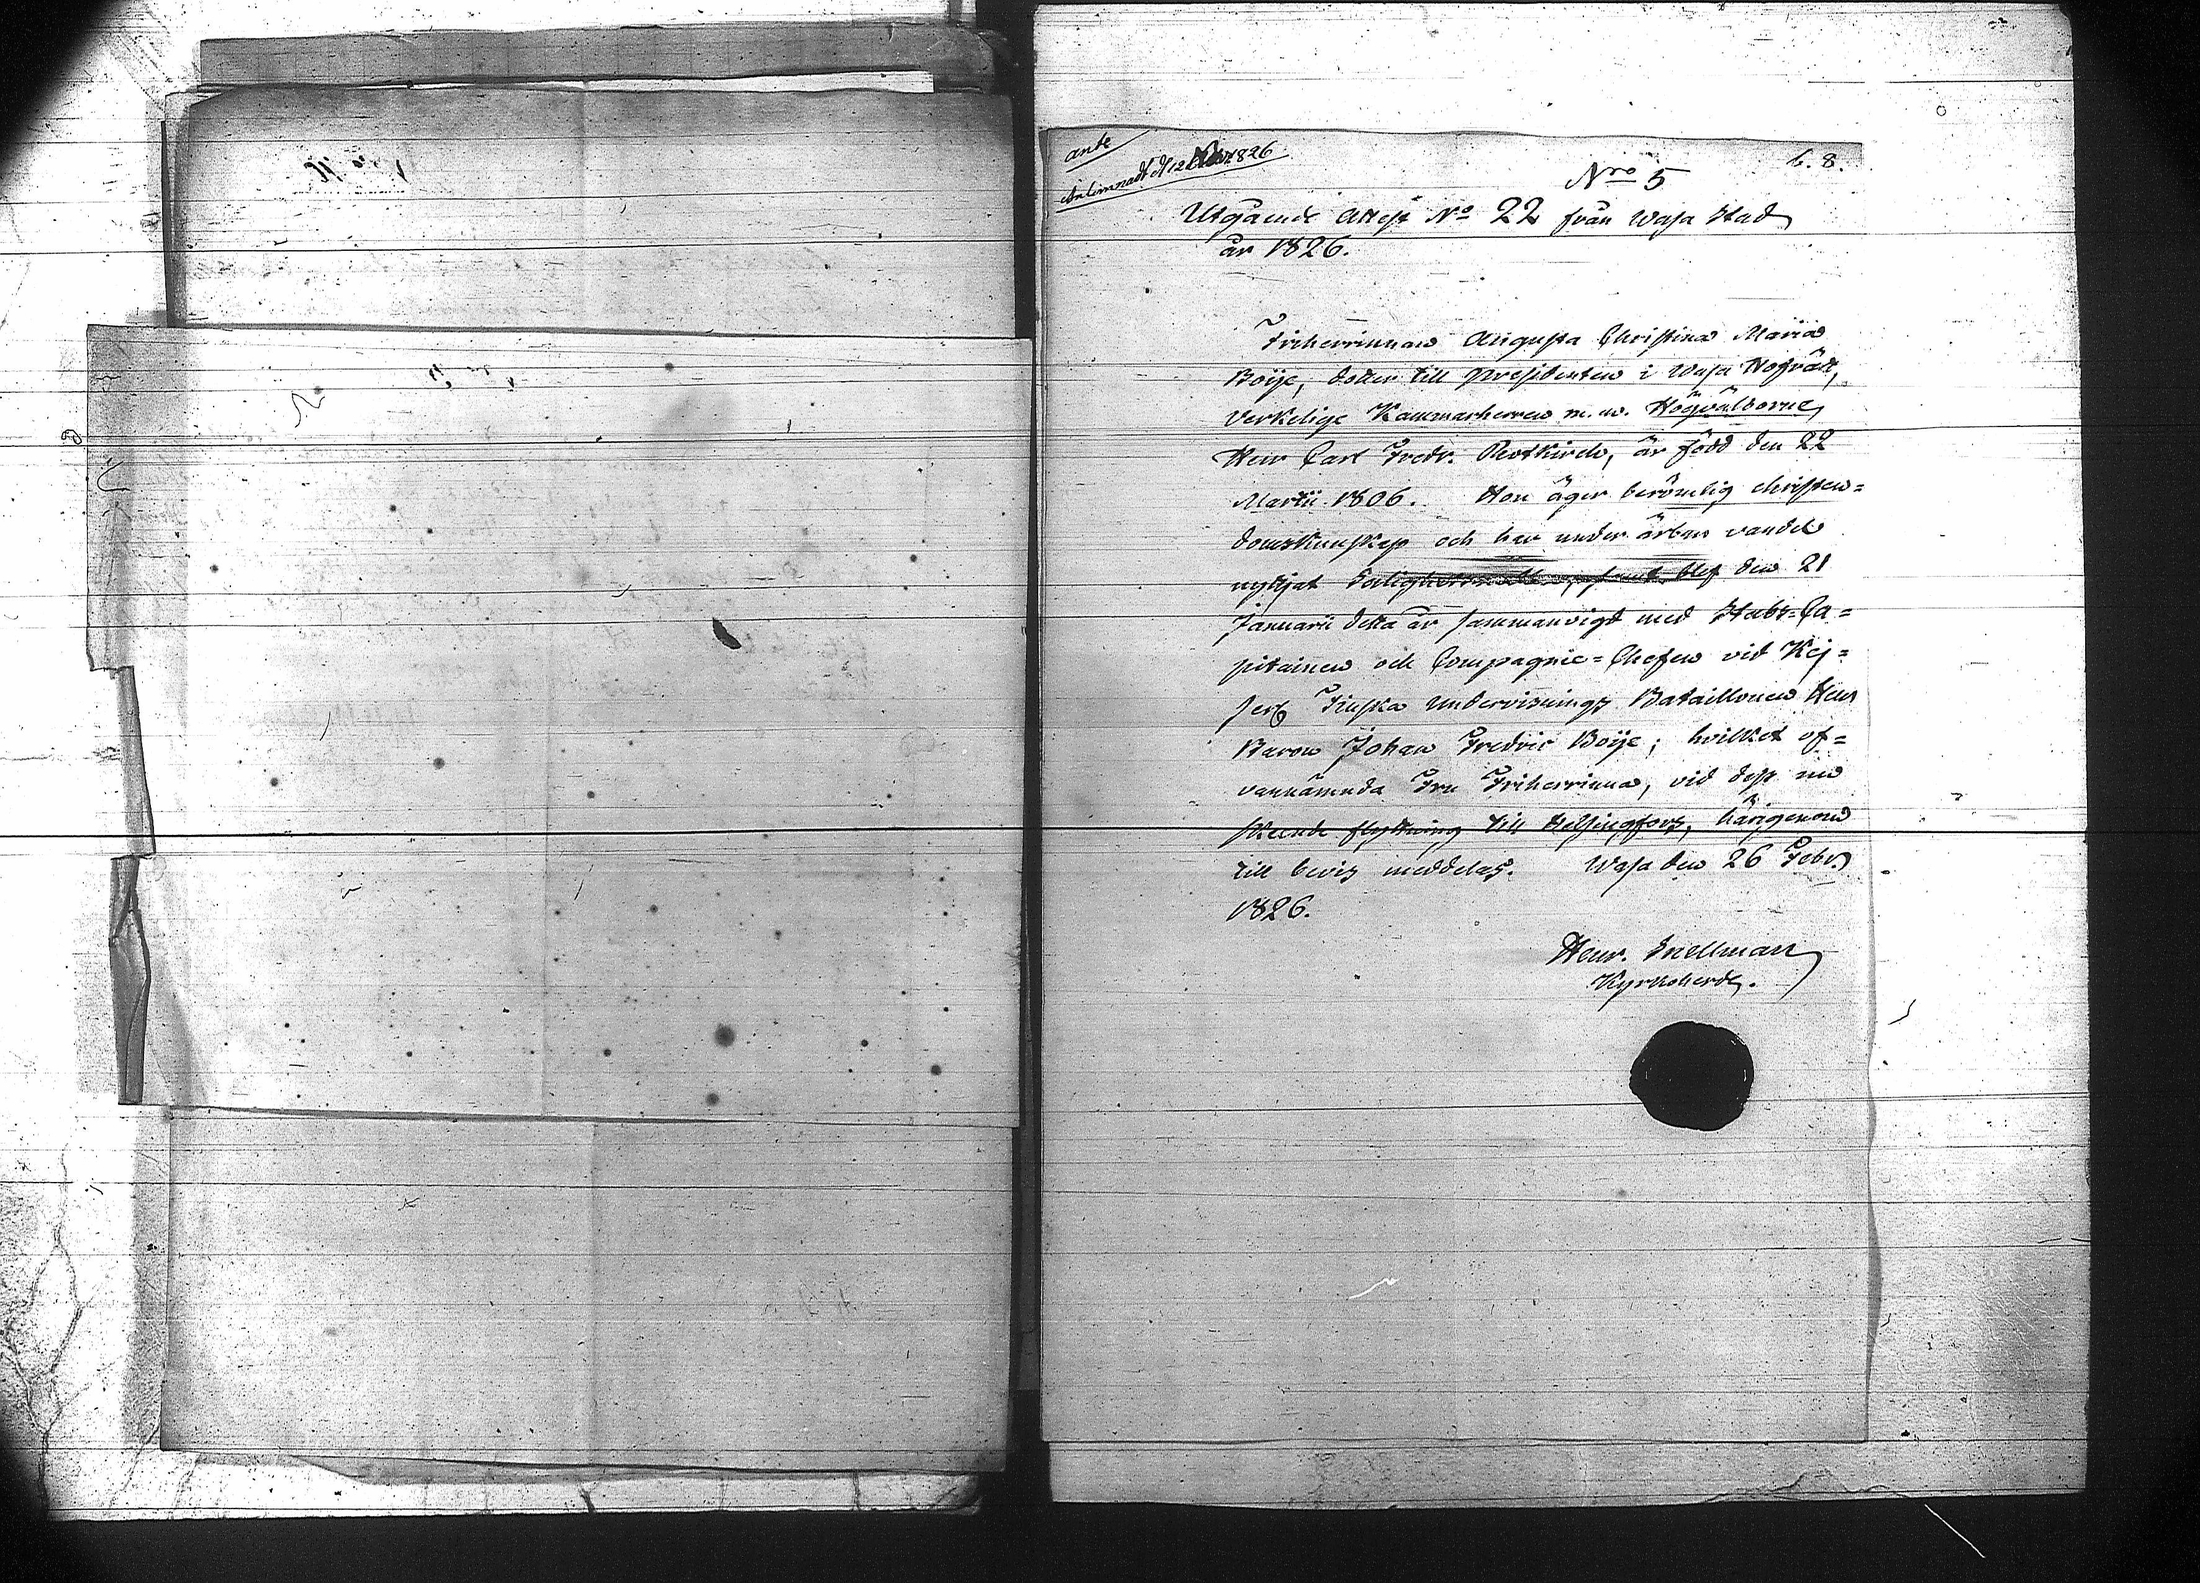 ant
Inlemnadt d 12 1826
6. 8.
Nro 5
Utgående Attest No 22 från Wasa Stad
år 1826.
Friherrinnan Augusta Christina Maria
Boije, dotter till Presidenten i Wasa Hofrätt,
Verkelige Kammarherren m. m. Högvälborne
Herr Carl Fredr. Rotkirch, är född den 22
Martii 1806. Hon äger berömlig christen=
domskunskap och har under ärbar vandel
nyttjat Salighetsmedlen, samt blef den 21
Januarii detta år sammanvigd med Stabs=Ca=
pitainen och Compagnie=Chefen vid Kej=
serl Finska Undervisnings Bataillonen Herr
Baron Johan Fredric Boije; hvilket of=
vannämnda Fru Friherrinna, vid dess nu
skeende flyttning till Helsingfors, härigenom
till bevis meddelas. Wasa den 26 Febr.
1826.
Henr. Snellman
Kyrkoherde.